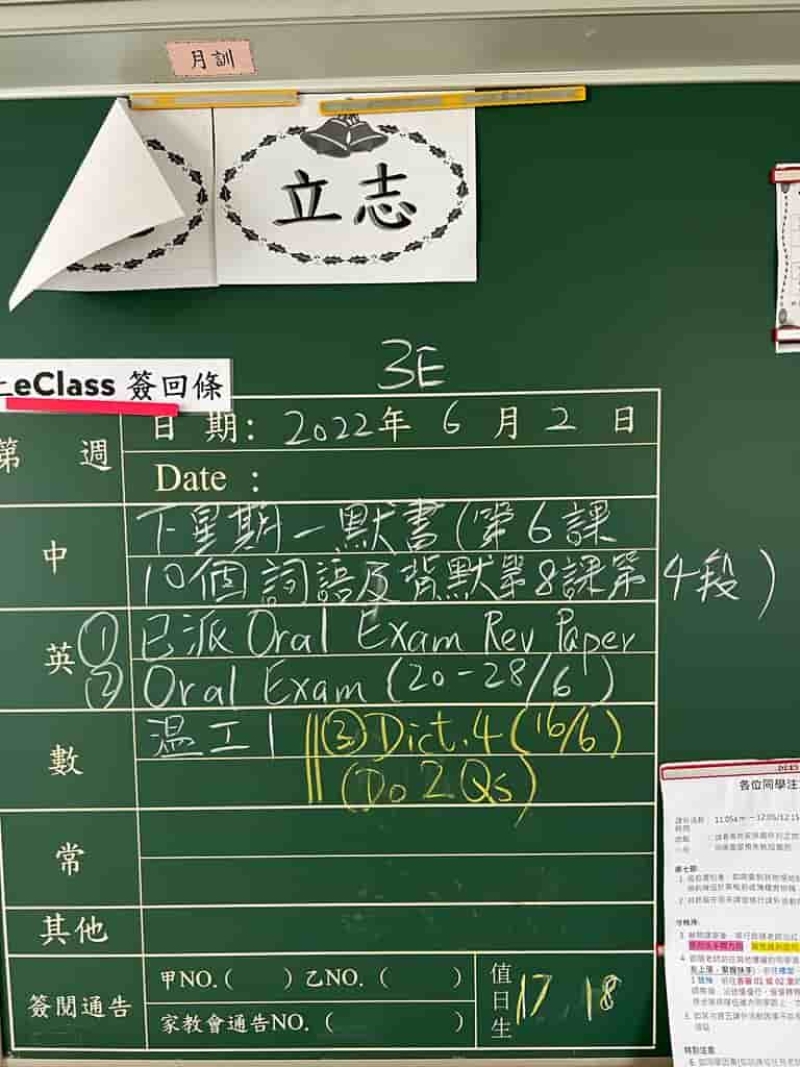 月訓
立志
3E
eClass 簽回條
第 週
日 期: 2022年 6 月 2 日
Date :
中
下星期一默書(第6課
10個詞語及背默第8課第4段)
英
① 已派 Oral Exam Rev Paper
② Oral Exam (20-28/6)
數
溫工1
③ Dict. 4 (16/6)
(Do 2 Qs)
常
其他
簽閱通告
甲NO.( ) 乙NO. ( )
家教會通告NO. ( )
值日生
17 18
各位同學注
11:05am - 12:05/12:15
特別注意